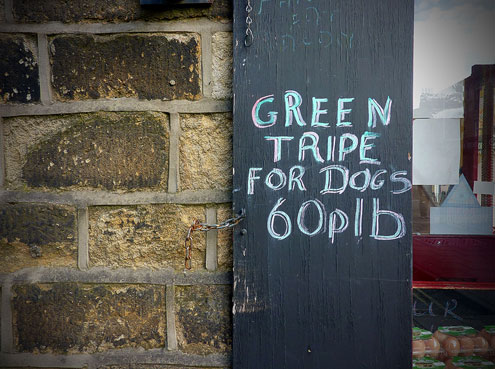 GREEN
TRIPE
FOR DOGS
60plb